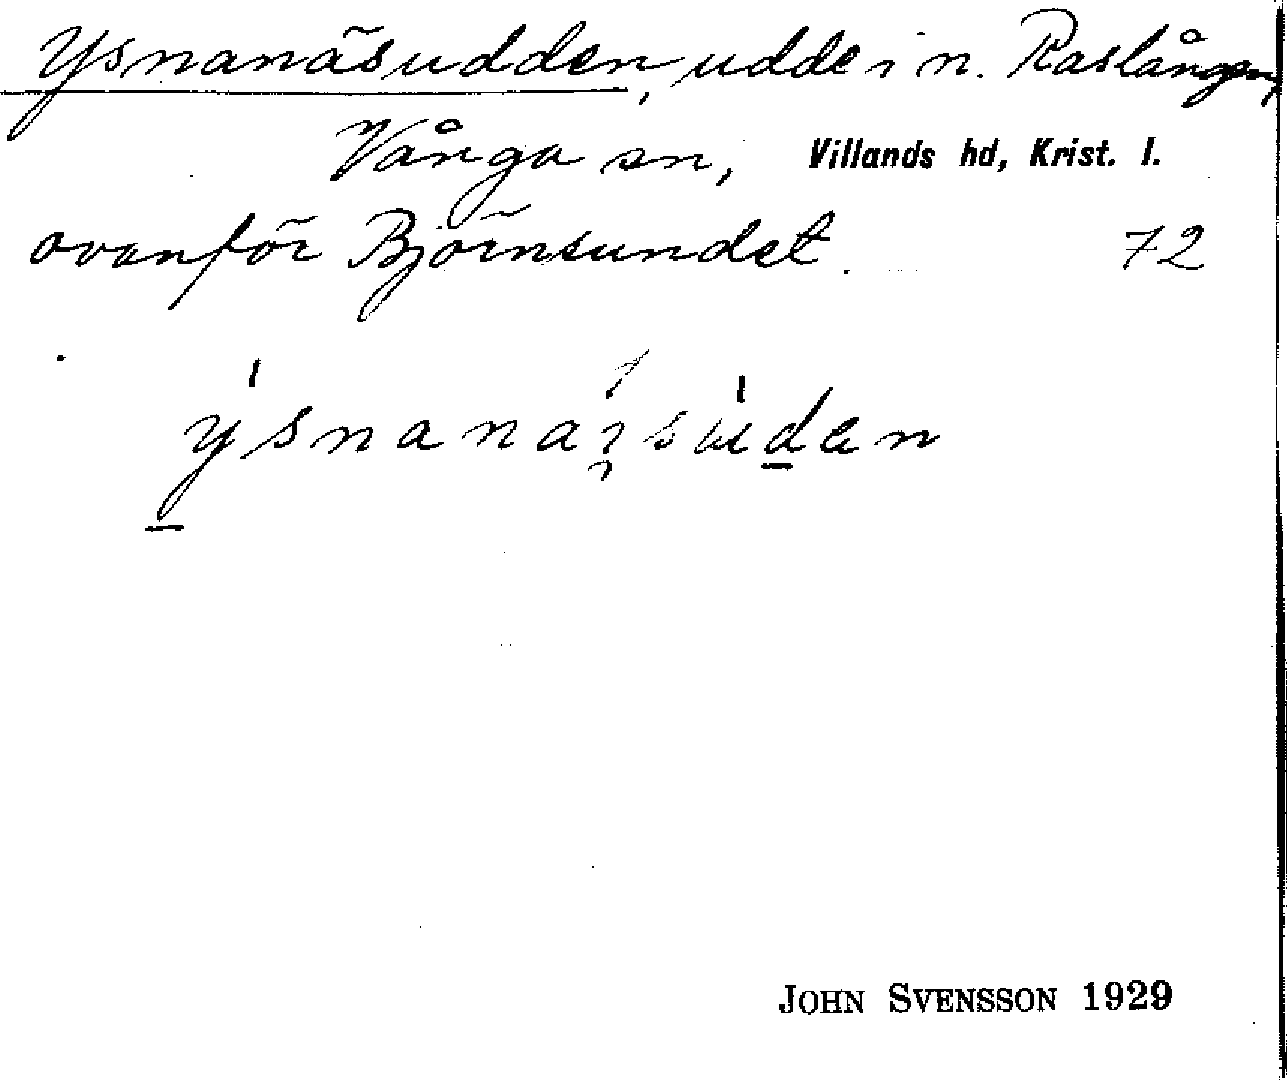 Ysnanäsudden, udde i n. Raslången,
Vånga sn, Villands hd, Krist. l.
ovanför Björnsundet. 72
ysnanaɂsuden
JOHN SVENSSON 1929